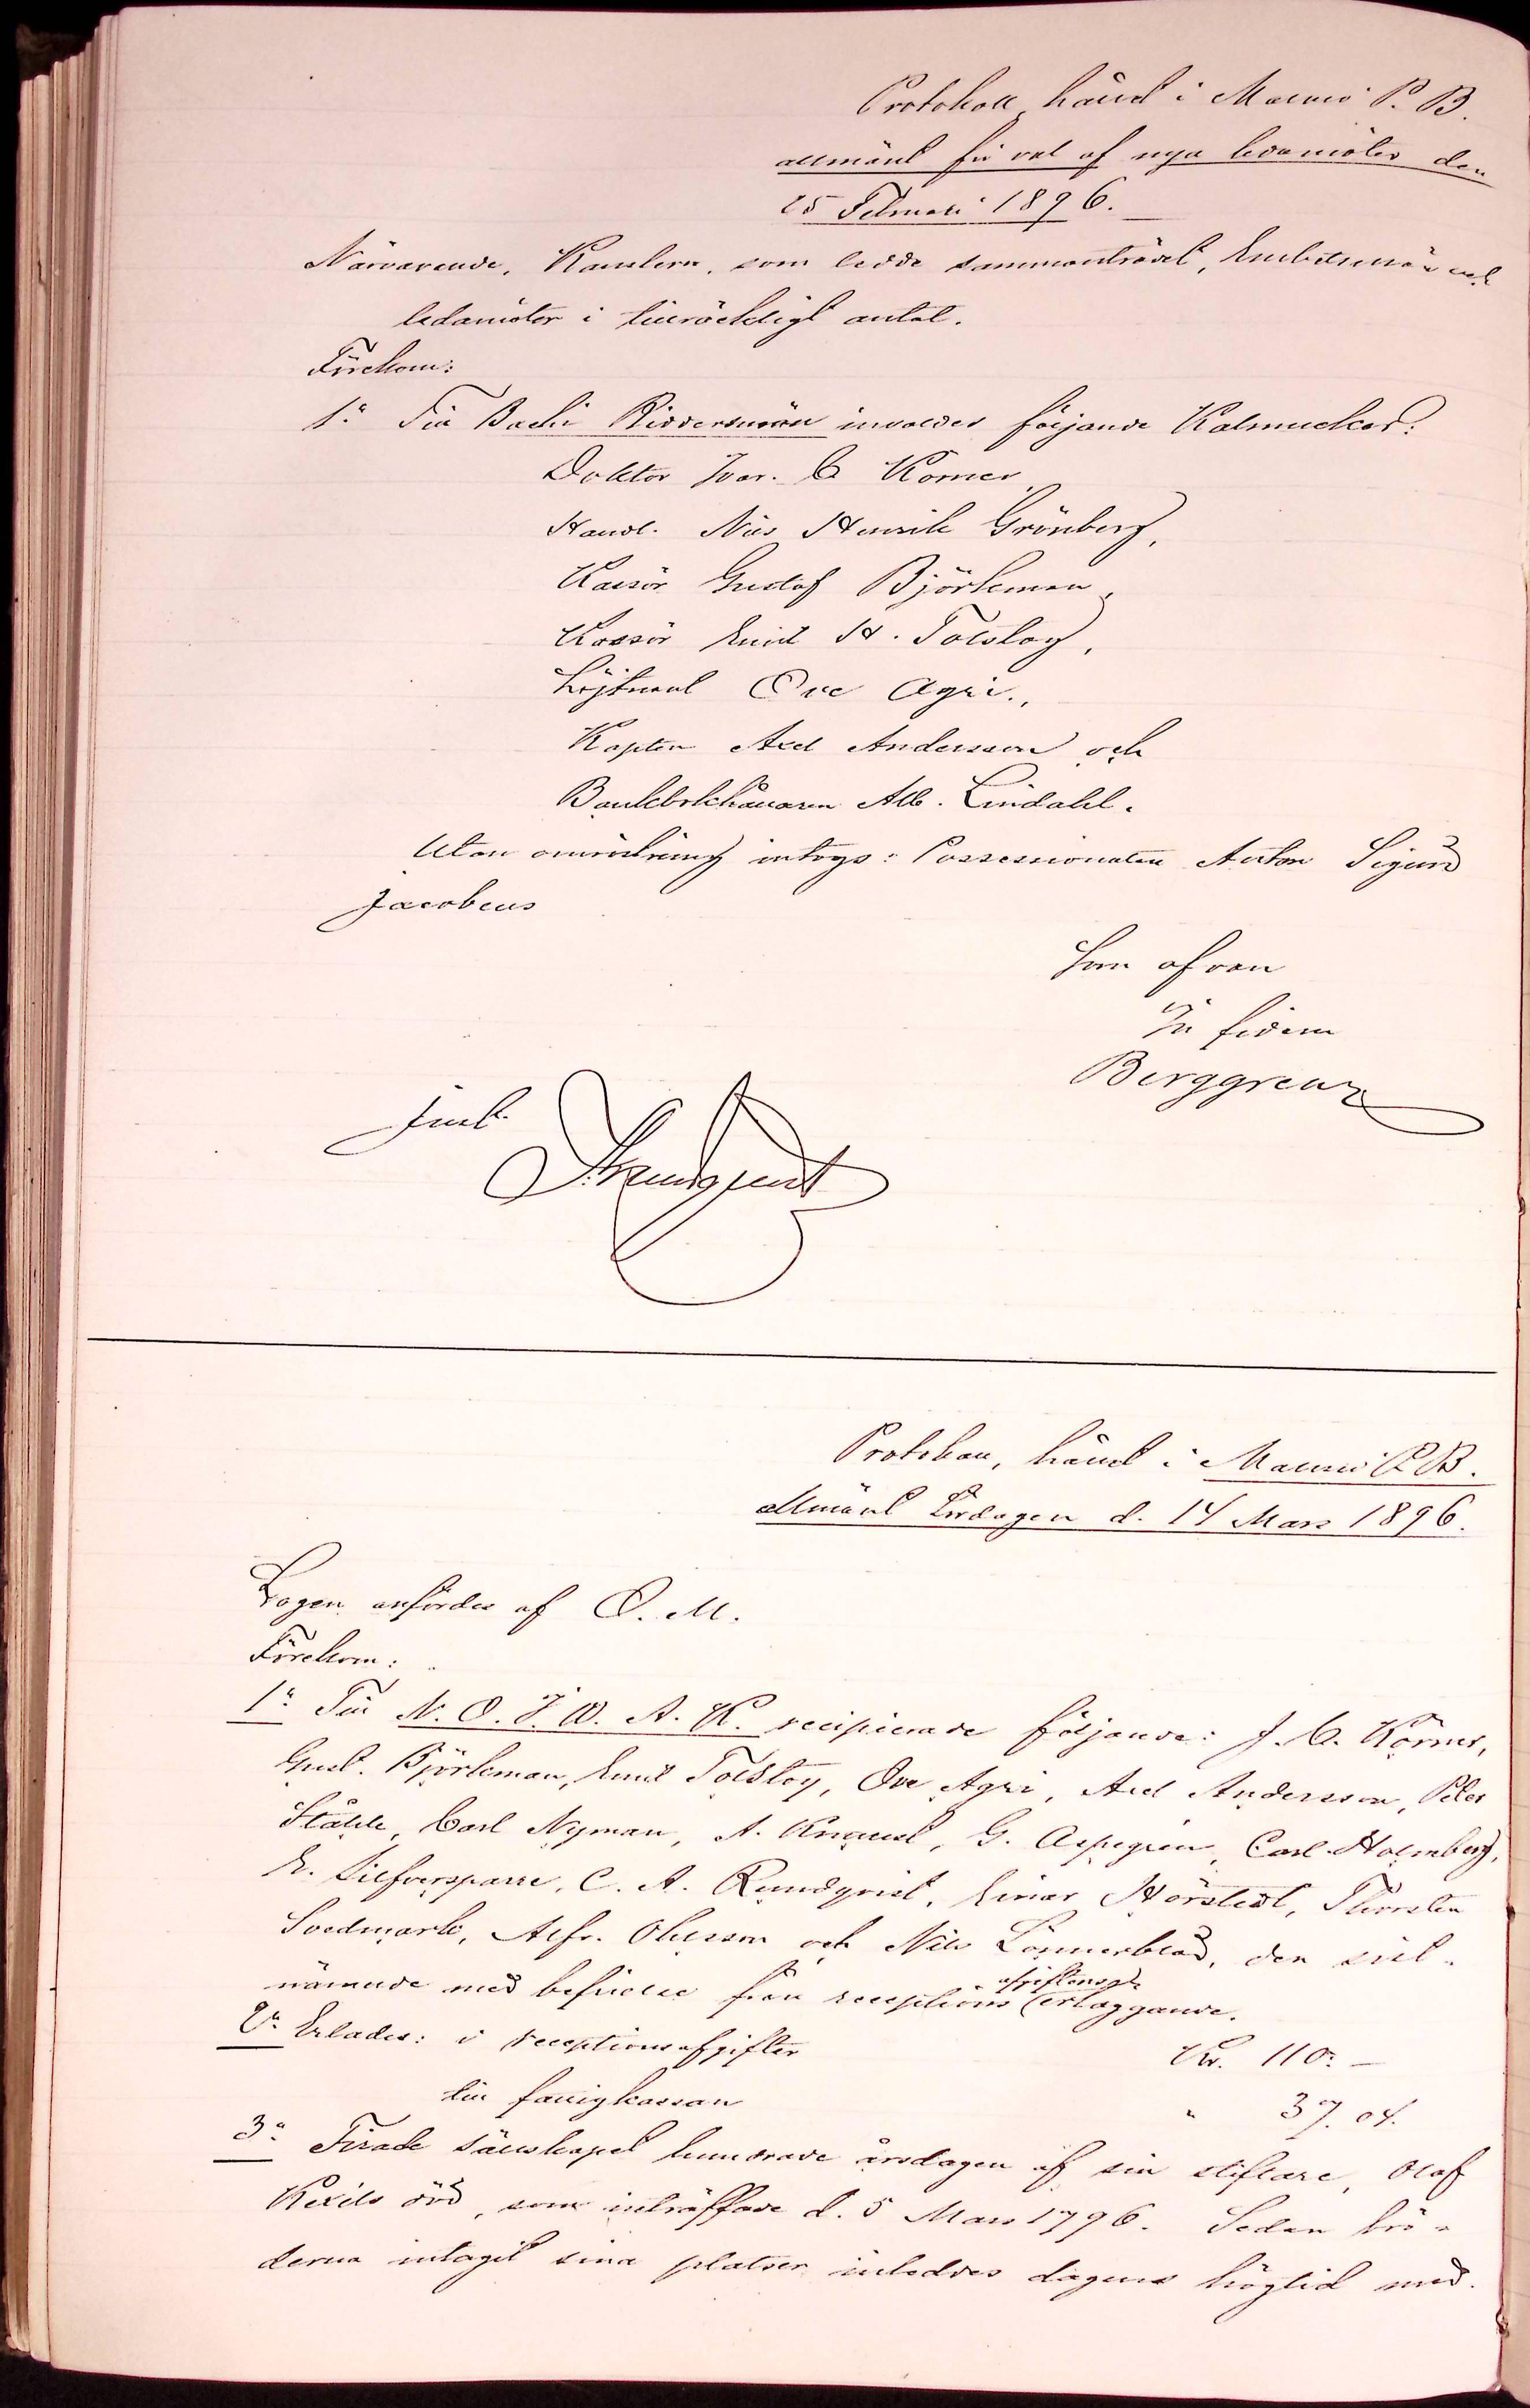 Protokoll, hållet i Malmö P. B.
allmänt för val af nya ledamöter den
25 Februari 1896.
Närvarande, Kanslern, som ledde sammanträdet, Embetsmän och
ledamöter i tillräckligt antal.
Förekom:
1:o Till Bacchi Riddersmän invaldes följande Kalmucker:
Doktor Ivar. C Körner,
Handl. Nils Henrik Grönberg,
Kassör Gustaf Björkeman,
Kassör Emil H. Tolstoy,
Löjtnant Ove Agri.,
Kapten Axel Andersson och
Bankbokhållaren Alb. Lindahl.
Utan omröstning intogs: Possessionaten Anton Sigurd
Jacobeus
Som ofvan
In fidem
Berggren
Just.
Protokoll, hållet i Malmö P. B.
allmänt Lördagen d. 14 Mars 1896.
Logen anfördes af O. M.
Förekom:
1:o Till N. O. J. W. A. K. recipierade följande: J. C. Körner,
Gust. Björkeman, Emil Tolstoy, Ove Agri, Axel Andersson, Peter
Ståhle, Carl Nyman, A. Knaust, G. Aspegren, Carl Holmberg,
E. Silfversparre, C. A. Rundqvist, Einar Hörstedt, Thorsten
Svedmark, Alfr. Ohlsson och Nils Lönnerblad, den sist-
nämnde med befrielse från receptions afgiftens erläggande.
2:o Erlades: i receptionsafgifter Kr. 110: —
till fattigkassan " 37. 04.
3:o Firade sällskapet hundrade årsdagen af sin stiftare, Olof
Kexéls död, som inträffade d. 5 Mars 1796. Sedan brö-
derna intagit sina platser inleddes dagens högtid med